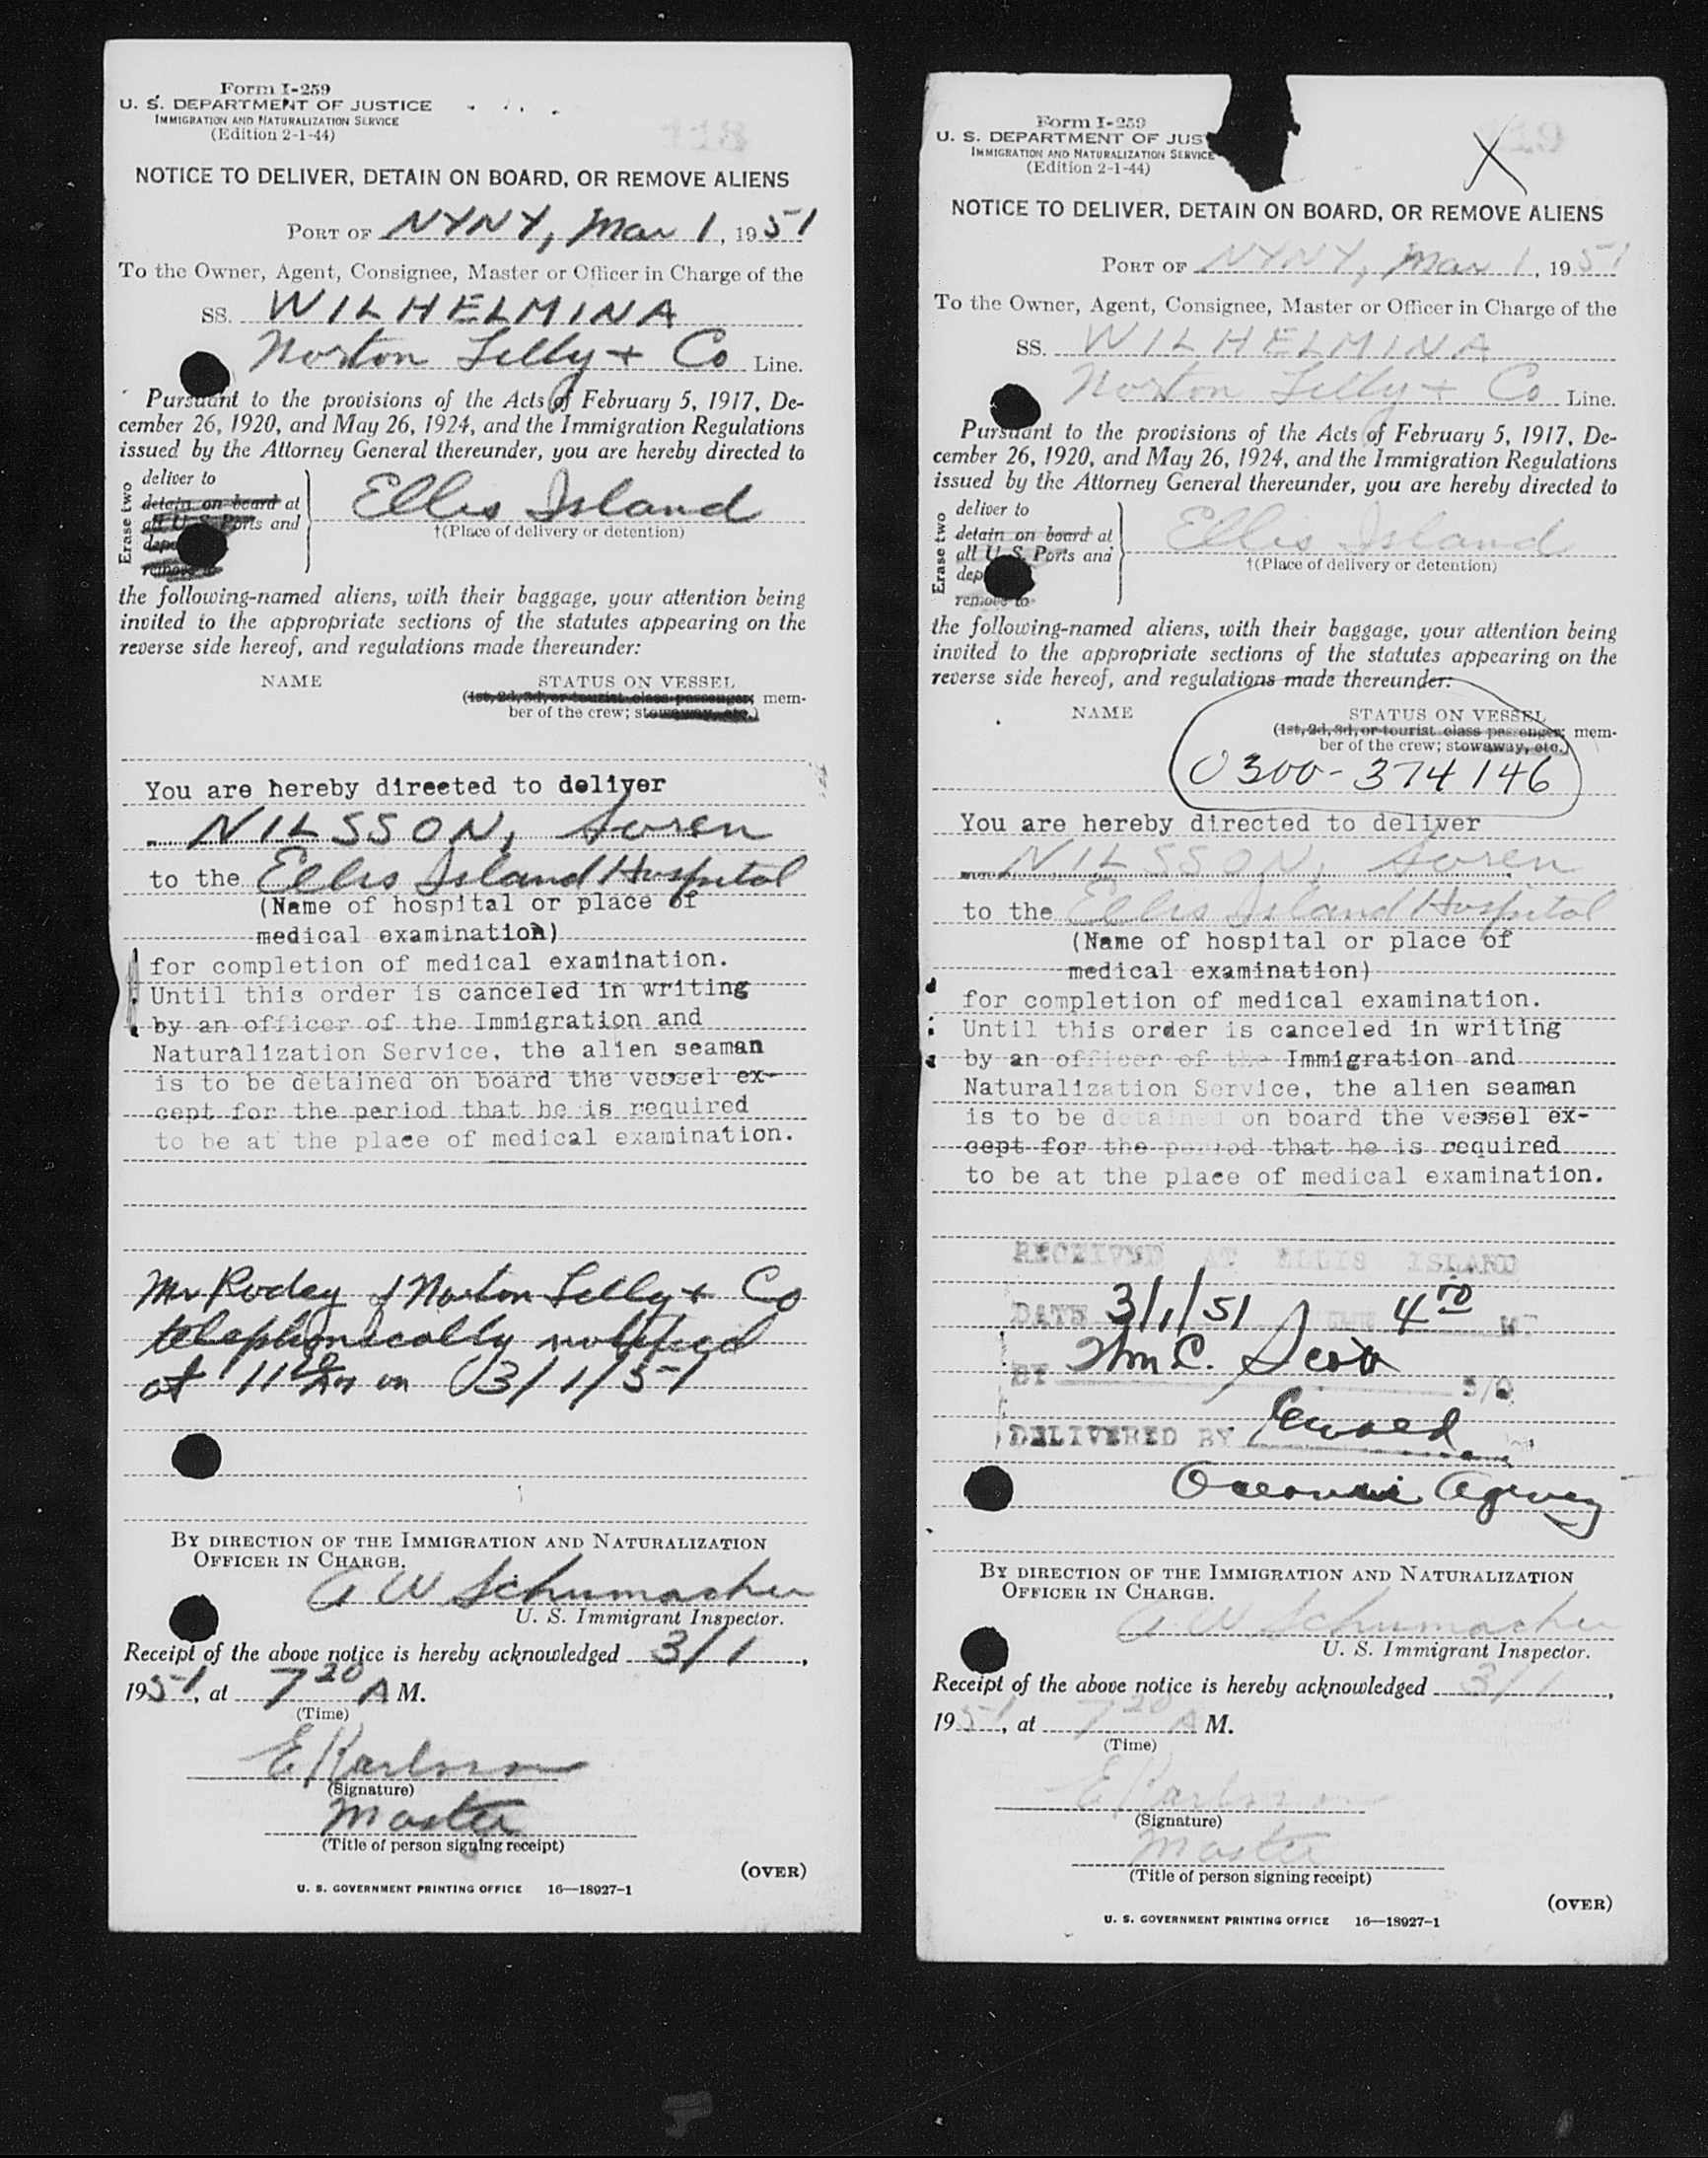 Form I-259
U. S. DEPARTMENT OF JUSTICE
IMMIGRATION AND NATURALIZATION SERVICE
(Edition 2-1-44)
NOTICE TO DELIVER, DETAIN ON BOARD, OR REMOVE ALIENS
PORT OF NYNY, Mar 1, 1951
To the Owner, Agent, Consignee, Master or Officer in Charge of the
SS. WILHELMINA
Norton Lilly + Co Line.
Pursuant to the provisions of the Acts of February 5, 1917, De-
cember 26, 1920, and May 26, 1924, and the Immigration Regulations
issued by the Attorney General thereunder, you are hereby directed to
Erase two
deliver to
detain on board at
all U. S. Ports and
remove to
Ellis Island
†(Place of delivery or detention)
the following-named aliens, with their baggage, your attention being
invited to the appropriate sections of the statutes appearing on the
reverse side hereof, and regulations made thereunder:
NAME STATUS ON VESSEL
(1st, 2d, 3d, or tourist class passenger; mem-
ber of the crew; stowaway, etc.)
You are hereby directed to deliver
NILSSON, Soren
to the Ellis Island Hospital
(Name of hospital or place of
medical examination)
for completion of medical examination.
Until this order is canceled in writing
by an officer of the Immigration and
Naturalization Service, the alien seaman
is to be detained on board the vessel ex-
cept for the period that he is required
to be at the place of medical examination.
Mr Rodey of Norton Lilly + Co
telephonically notified
at on 3/1/51
BY DIRECTION OF THE IMMIGRATION AND NATURALIZATION
OFFICER IN CHARGE.
A W Schumacher
U. S. Immigrant Inspector.
Receipt of the above notice is hereby acknowledged 3/1,
1951, at 7 20 A M.
(Time)
E Karlsson
(Signature)
Master
(Title of person signing receipt)
(OVER)
U. S. GOVERNMENT PRINTING OFFICE 16—18927-1
Form I-259
U. S. DEPARTMENT OF JUS
IMMIGRATION AND NATURALIZATION SERVICE
(Edition 2-1-44)
X
NOTICE TO DELIVER, DETAIN ON BOARD, OR REMOVE ALIENS
PORT OF NYNY, Mar 1, 1951
To the Owner, Agent, Consignee, Master or Officer in Charge of the
SS. WILHELMINA
Norton Lilly + Co Line.
Pursuant to the provisions of the Acts of February 5, 1917, De-
cember 26, 1920, and May 26, 1924, and the Immigration Regulations
issued by the Attorney General thereunder, you are hereby directed to
Erase two
deliver to
detain on board at
all U. S. Ports and
dep
remove to
Ellis Island
†(Place of delivery or detention)
the following-named aliens, with their baggage, your attention being
invited to the appropriate sections of the statutes appearing on the
reverse side hereof, and regulations made thereunder:
NAME STATUS ON VESSEL
(1st, 2d, 3d, or tourist class passenger; mem-
ber of the crew; stowaway, etc.)
0300-374146
You are hereby directed to deliver
NILSSON, Soren
to the Ellis Island Hospital
(Name of hospital or place of
medical examination)
for completion of medical examination.
Until this order is canceled in writing
by an officer of the Immigration and
Naturalization Service, the alien seaman
is to be detained on board the vessel ex-
cept for the period that he is required
to be at the place of medical examination.
RECEIVED AT ELLIS ISLAND
DATE 3/1/51 TIME 4 10 M.
BY Wm C. Scott
DELIVERED BY
Agency
BY DIRECTION OF THE IMMIGRATION AND NATURALIZATION
OFFICER IN CHARGE.
A W Schumacher
U. S. Immigrant Inspector.
Receipt of the above notice is hereby acknowledged 3/1,
1951, at 7 20 A M.
(Time)
E Karlsson
(Signature)
Master
(Title of person signing receipt)
(OVER)
U. S. GOVERNMENT PRINTING OFFICE 16—18927-1